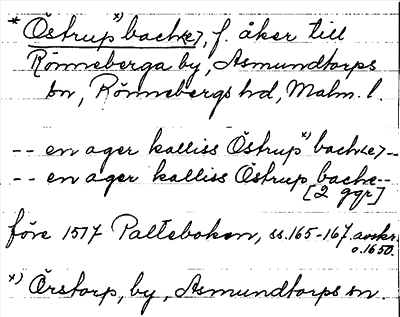 * Östrup x) bach<e>, f. åker till
Rönneberga by, Asmundtorps
sn, Rönnebergs hd, Malm. l.
-- en ager kalliss Östrup x) bach<e> --
-- en ager kalliss Östrup bache --
[2 ggr]
före 1577 Palteboken, ss. 165-167 avskr.
o. 1650.
x) Örstorp, by, Asmundtorps sn.